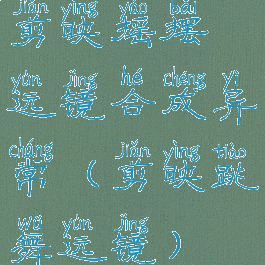 jiǎn yìng yáo bǎi
剪映摇摆
yùn jìng hé chéng yì
运镜合成异
cháng jiǎn yìng tiào
常（剪映跳
wǔ yùn jìng
舞运镜）